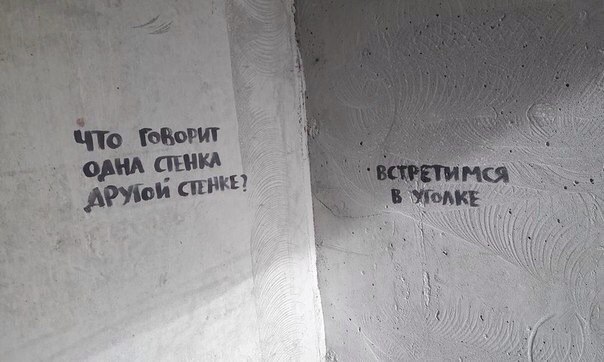 ЧТО ГОВОРИТ
ОДНА СТЕНКА
ДРУГОЙ СТЕНКЕ?
ВСТРЕТИМСЯ
В УГОЛКЕ